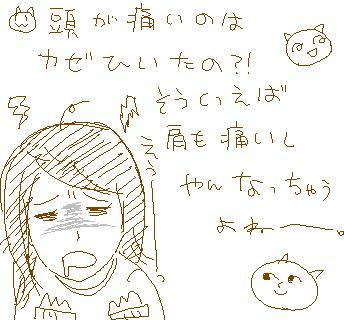 頭が痛いのは
カゼひいたの?!
そういえば
肩も痛いし
やんなっちゃう
よねー。
えっ